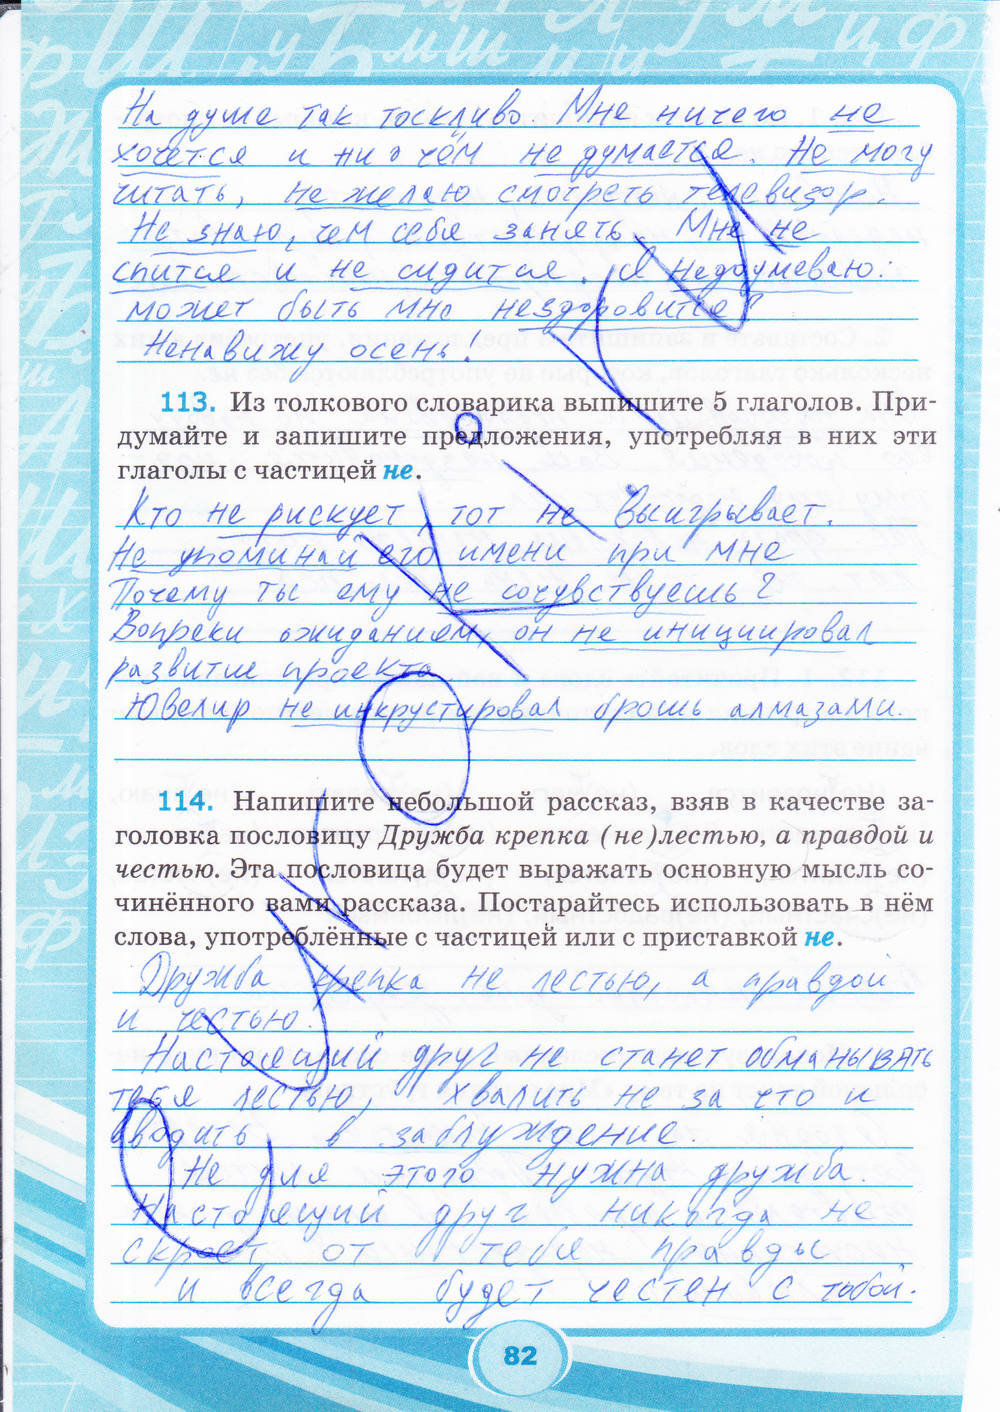 На душе так тоскливо. Мне ничего не
хочется и ни о чём не думается. Не могу
читать, не желаю смотреть телевизор.
Не знаю, чем себя занять. Мне не
спится и не сидится. Я недоумеваю:
может быть мне нездоровится?
Ненавижу осень!
113. Из толкового словарика выпишите 5 глаголов. При-
думайте и запишите предложения, употребляя в них эти
глаголы с частицей не.
Кто не рискует, тот не выигрывает.
Не упоминай его имени при мне
Почему ты ему не сочувствуешь?
Вопреки ожиданиям, он не инициировал
развитие проекта
Ювелир не инкрустировал брошь алмазами.
114. Напишите небольшой рассказ, взяв в качестве за-
головка пословицу Дружба крепка (не)лестью, а правдой и
честью. Эта пословица будет выражать основную мысль со-
чинённого вами рассказа. Постарайтесь использовать в нём
слова, употреблённые с частицей или с приставкой не.
Дружба крепка не лестью, а правдой
и честью.
Настоящий друг не станет обманывать
тебя лестью, хвалить не за что и
вводить в заблуждение.
Не для этого нужна дружба.
Настоящий друг никогда не
скроет от тебя правды
и всегда будет честен с тобой.
82